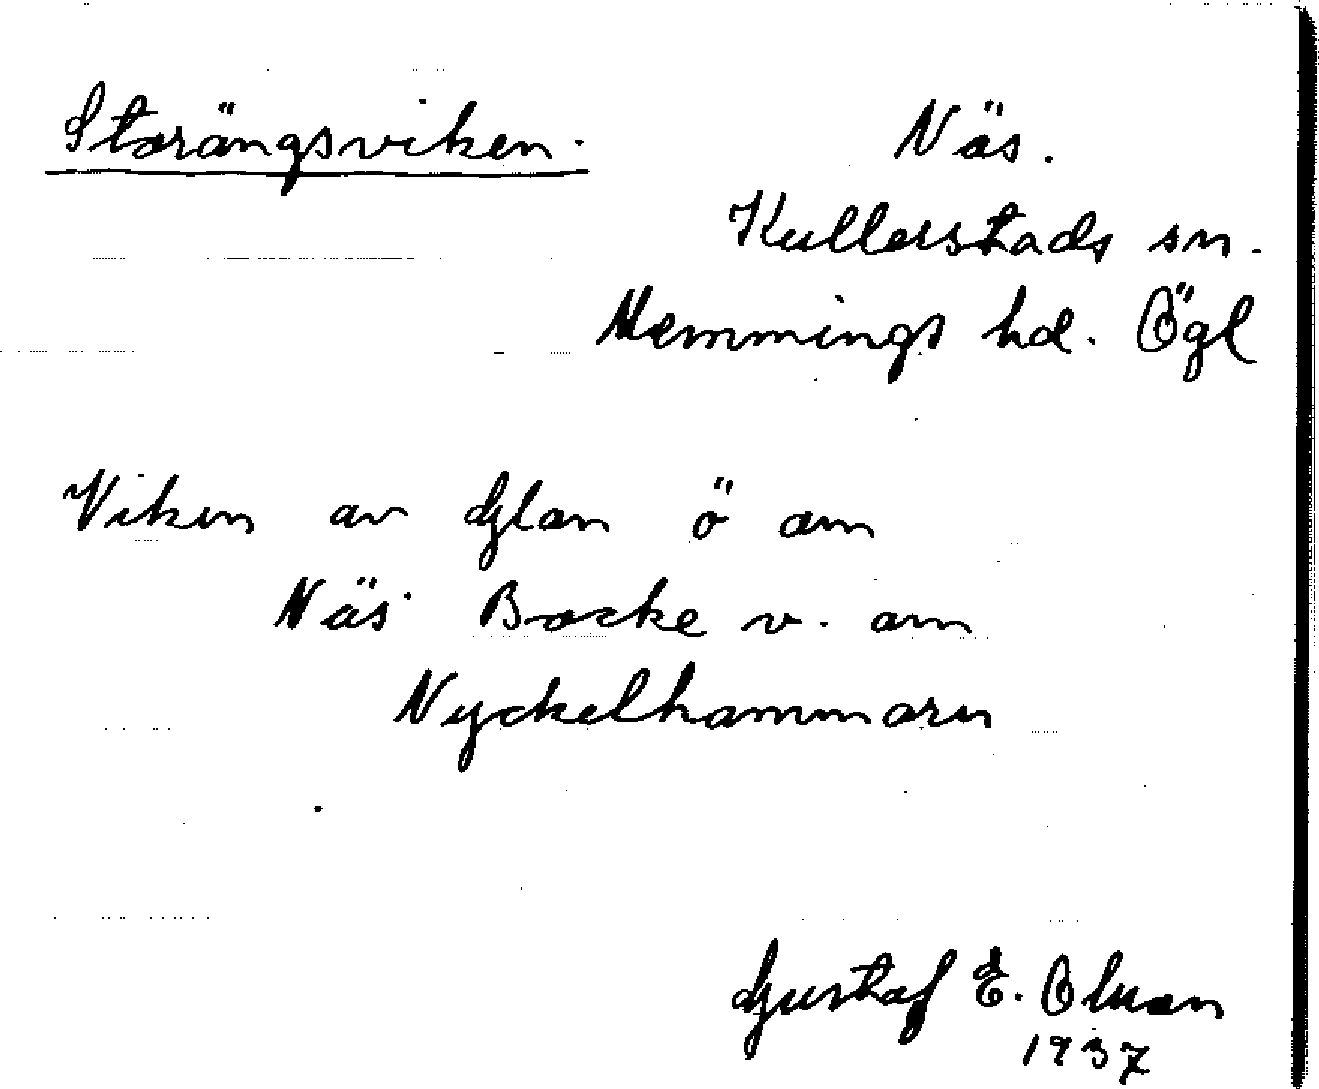 Storängsviken.
Näs.
Kullerstads sn.
Memmings hd. Ögl
Viken av Glan ö om
Näs Backe v. om
Nyckelhammarn
Gustaf E. Olsson
1937